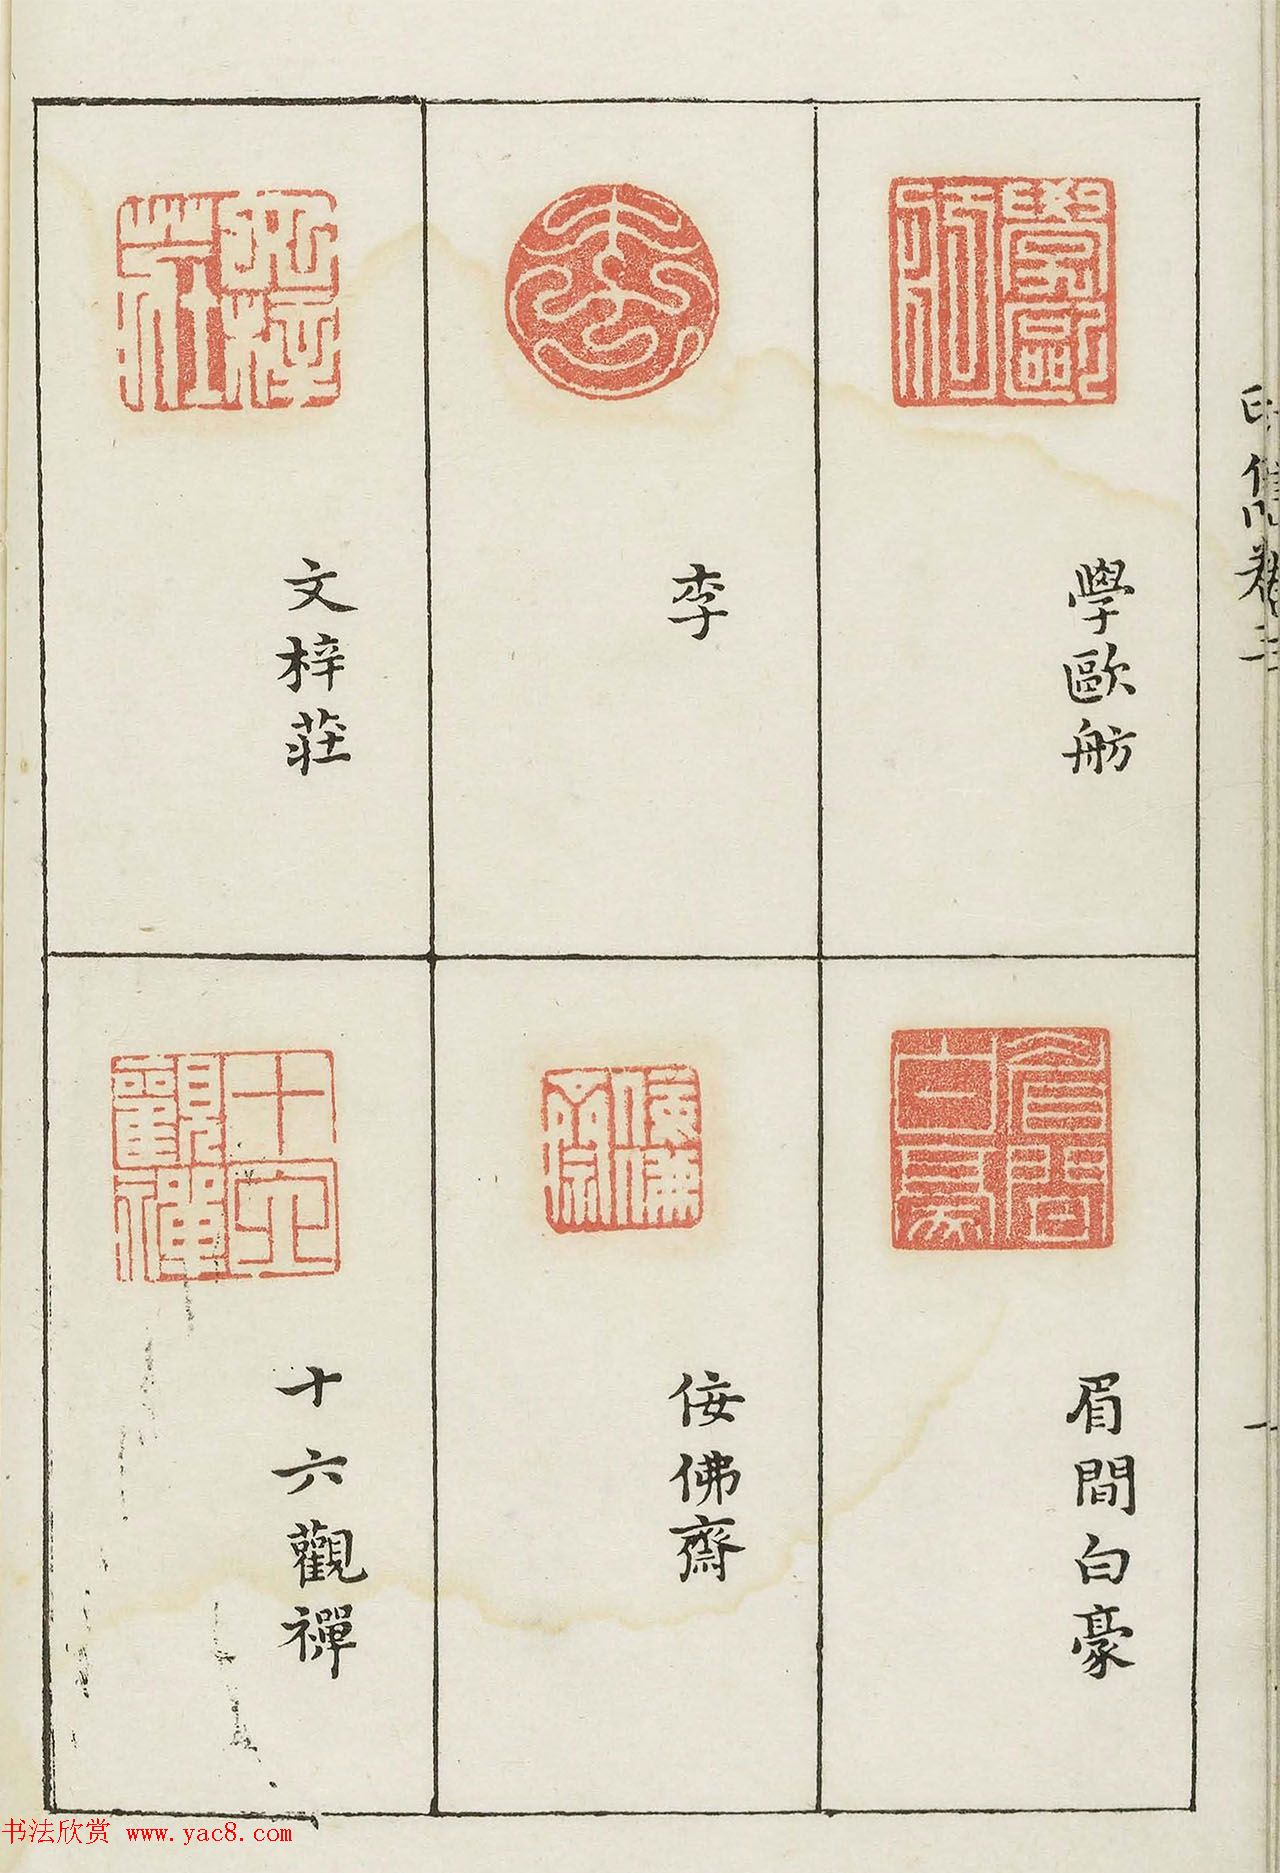 學歐舫
李
文梓莊
眉間白豪
佞佛齋
十六觀禪
書法欣赏 www.yac8.com